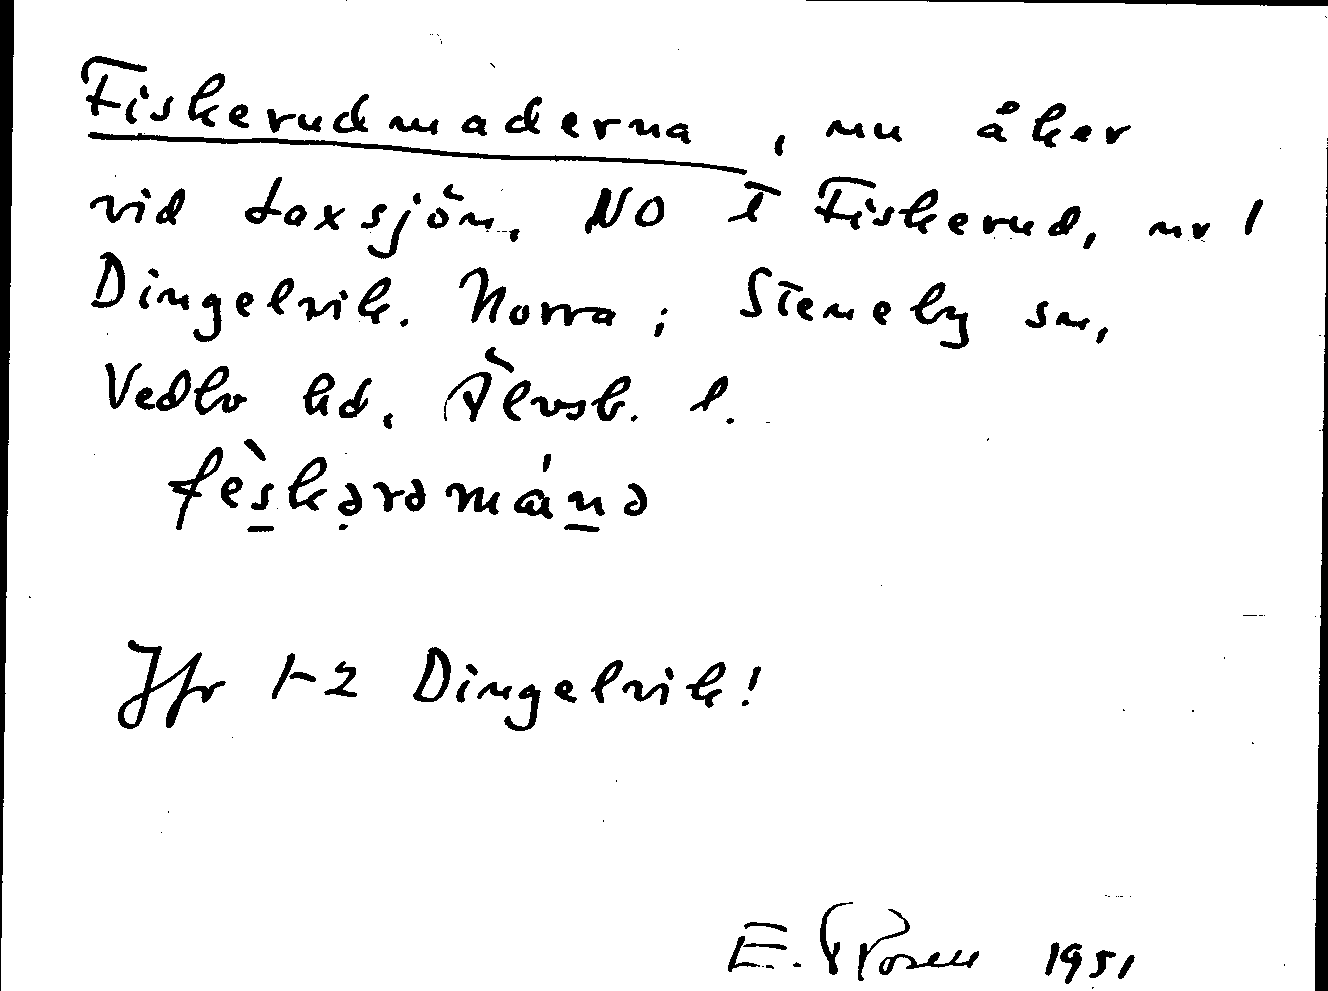 Fiskerudmaderna, nu åker
vid Laxsjön, NO I Fiskerud, nr 1
Dingelvik. Norra; Steneby sn,
Vedbo hd, Älvsb. l.
fèskərəmánə
Jfr 1-2 Dingelvik!
E. Rosell 1951